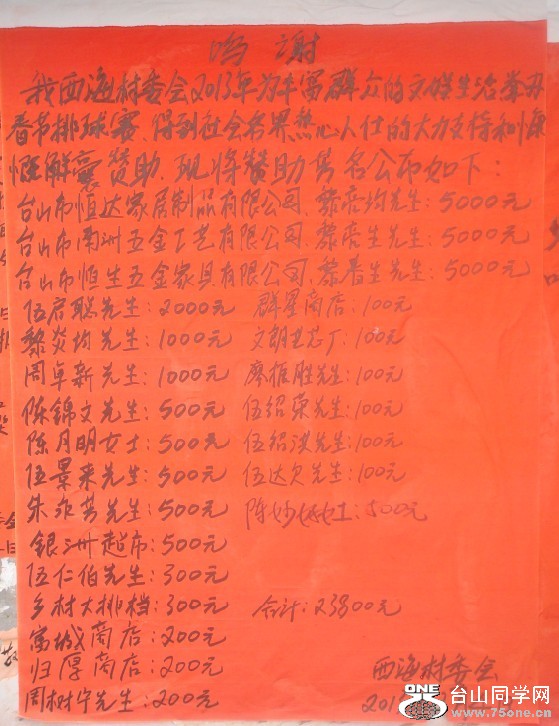 鸣谢
我西海村委会2013年为丰富群众的文娱生活举办
春节排球赛，得到社会各界热心人仕的大力支持和慷
慨解囊赞助．现将赞助芳名公布如下：
台山市恒达家居制品有限公司．黎 均先生：5000元
台山市南洲五金工艺有限公司．黎 生先生：5000元
台山市恒生五金家具有限公司．黎春生先生：5000元
伍启聪先生：2000元 群星商店：100元
黎炎均先生：1000元 文朗 厂：100元
周卓新先生：1000元 廖振胜先生：100元
陈錦文先生：500元 伍绍荣先生：100元
陈月明女士：500元 伍绍洪先生：100元
伍景来先生：500元 伍达欠先生：100元
朱永芳先生：500元 陈妙 女士：500元
銀洲超市：500元
伍仁伯先生：300元
乡村大排档：300元 合计：23800元
富城商店：200元
归厚商店：200元 西海村委会
周树宁先生：200元 201
ONE 台山同学网
www.75one.cn